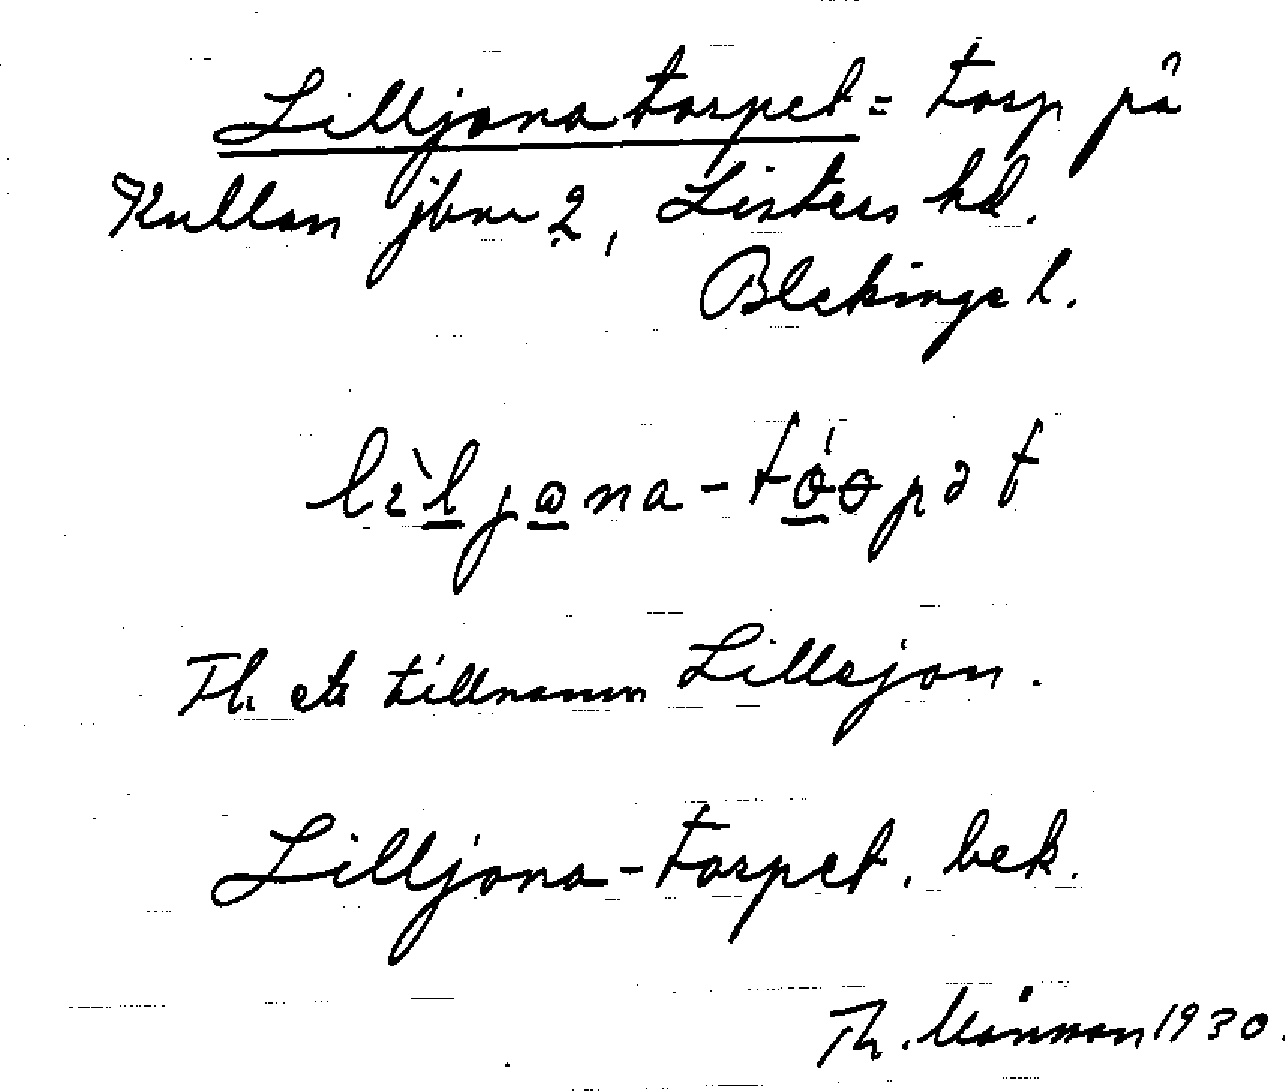 Lilljonatorpet = torp på
Kullan jbnr 2, Listers hd.
Blekinge l.
lìljona-tóopət
Th. ett tillnamn Lillejon.
Lilljona-torpet. bek.
Th. 1930.